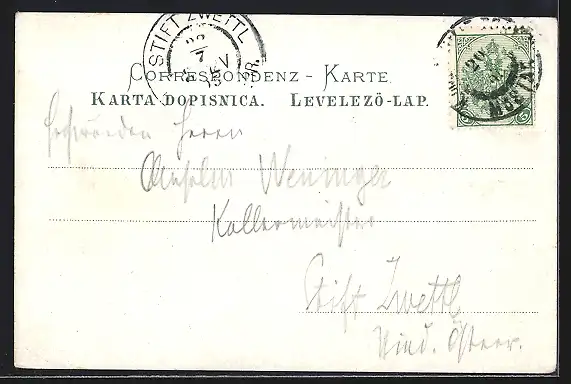 STIFT ZWETTL
CORRESPONDENZ - KARTE
KARTA DOPISNICA. LEVELEZÖ-LAP.
Hochwürden Herrn
Anselm Weninger
Kellermeister
Stift Zwettl
Nied. Österr.